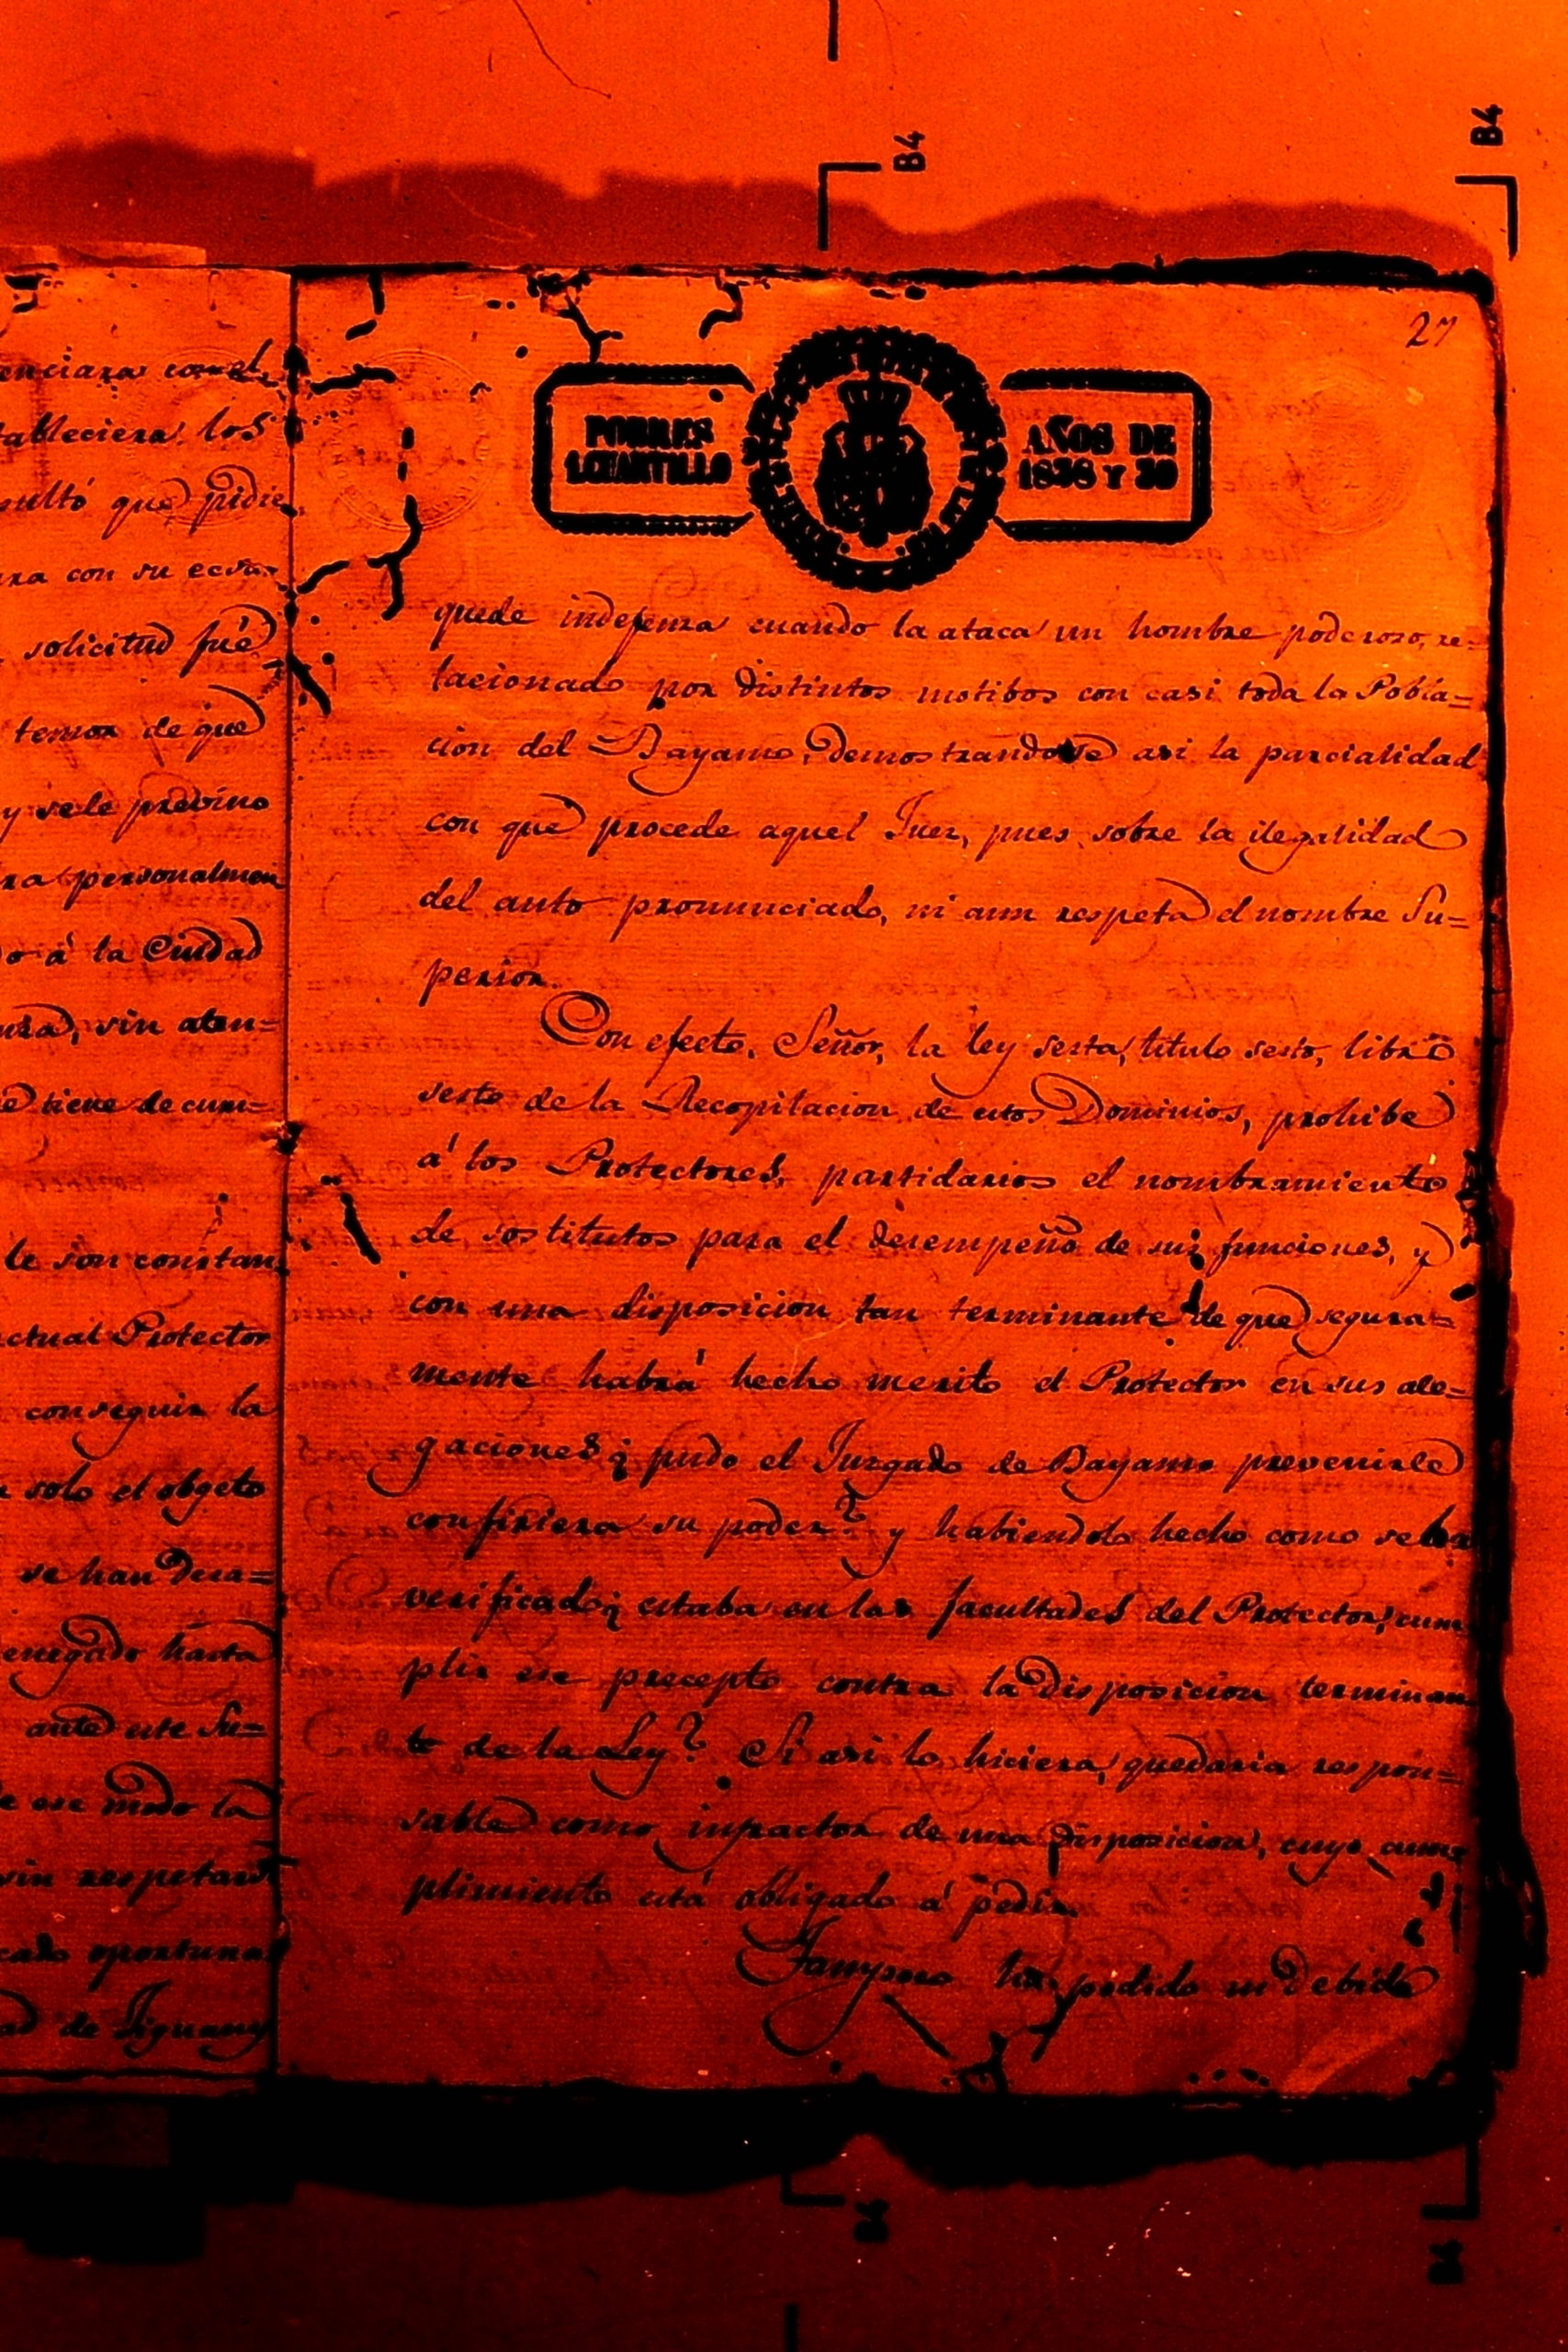 B4
B4
enciara con el
tableciera los
sultó que pidie
ra con su
solicitud fué
temor de que
y se le previno
ra personalmen
do á la Ciudad
sin aten=
tiene de cum=
le son constan
actual Protector
conseguir la
solo el objeto
se han
enegado hasta
ante este Su=
e ese modo la
sin respetar
cado oportuna
ad de Jiguaní
27
POBRES
A CUARTILLO
AÑOS DE
1838 Y 39
quede indefenza cuando la ataca un hombre poderozo, re=
lacionado por distintos motibos con casi toda la Pobla=
cion del Bayamo, demostrandose asi la parcialidad
con que procede aquel Juez, pues sobre la ilegalidad
del auto pronunciado, ni aun respeta el nombre Su=
perior.
Con efecto, Señor, la ley sesta, titulo sesto, libro
sesto de la Recopilacion de estos Dominios, prohibe
á los Protectores, partidarios el nombramiento
de sostitutos para el desempeño de sus funciones, y
con una disposicion tan terminante de que segura=
mente habrá hecho merito el Protector en sus ale=
gaciones ¿ pudo el Juzgado de Bayamo prevenirle
confiriera su poder? y habiendolo hecho como se ha
verificado ¿ estaba en las facultades del Protector, cum
plir ese precepto contra la disposicion terminan
te de la Ley? Si asi lo hiciera, quedaria respon=
sable como infractor de una disposicion, cuyo cum=
plimiento está obligado á pedir.
Tampoco ha podido ni debido
B4
B4